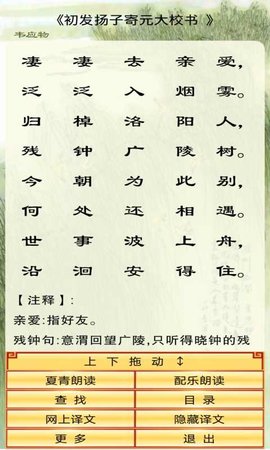 《初发扬子寄元大校书 》
韦应物
凄凄去亲爱，
泛泛入烟雾。
归棹洛阳人，
残钟广陵树。
今朝为此别，
何处还相遇。
世事波上舟，
沿洄安得住。
【注释】：
亲爱：指好友。
残钟句：意谓回望广陵，只听得晓钟的残
上 下 拖 动 ↕
夏青朗读
配乐朗读
查 找
目 录
网上译文
隐藏译文
更 多
退 出